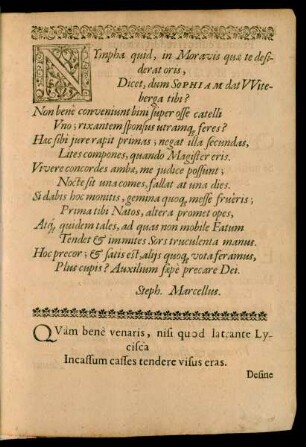 NYmpha quid, in Moravis quæ te desi-
derat oris,
Dicet, dum SOPHIAM dat VVite-
berga tibi?
Non benè conveniunt bini super osse catelli
Vno; rixantem sponsus utramq; feres?
Hac sibi jure rapit primas; negat illa secundas,
Lites compones, quando Magister eris.
Vivere concordes ambæ, me judice possunt;
Nocte sit una comes, fallat at una dies.
Si dabis hoc monitis, gemina quoq; messe frueris;
Prima tibi Natos, altera promet opes,
Atq; quidem tales, ad quas non mobile Fatum
Tendet & immites Sors truculenta manus.
Hoc precor; & satis est, alijs quoq; vota feramus,
Plus cupis? Auxilium sæpè precare Dei.
Steph. Marcellus.
QVàm benè venaris, nisi quod latrante Ly-
cisca
Incassum casses tendere visus eras.
Desine